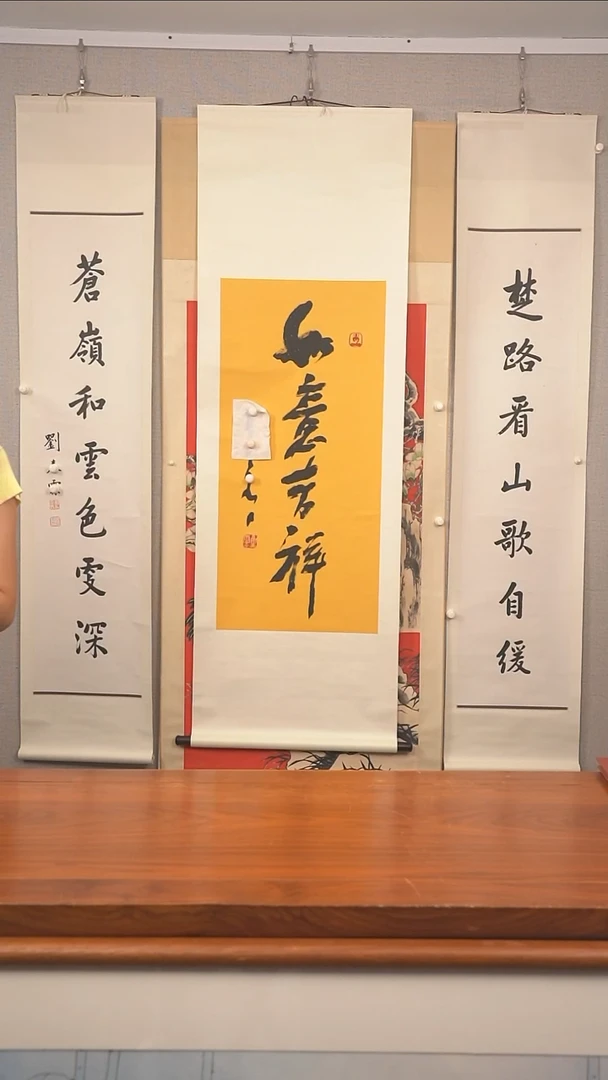 楚路看山歌自缓
如意吉祥
蒼嶺和雲色雯深
劉